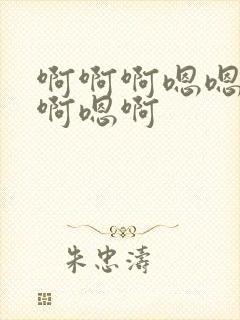 啊啊啊嗯嗯
啊嗯啊
朱忠濤